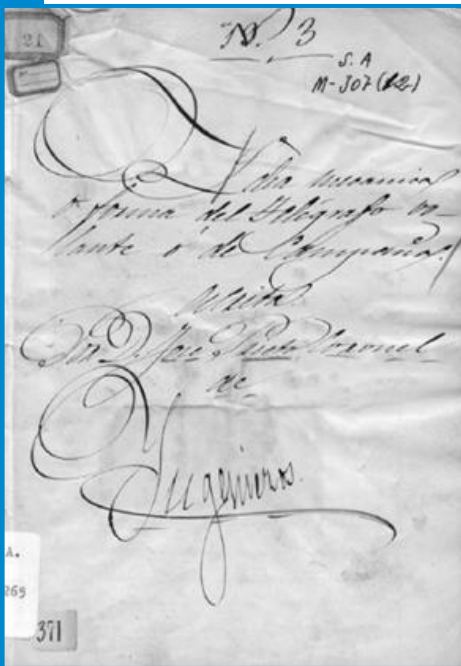 21
Nº. 3
S.A
M-307 (12)
Idea mecanica
o forma del Telégrafo vo-
lante ó de Campaña.
escrita
Por D. Jose Prieto Coronel
de
Ingenieros.
A.
269
371